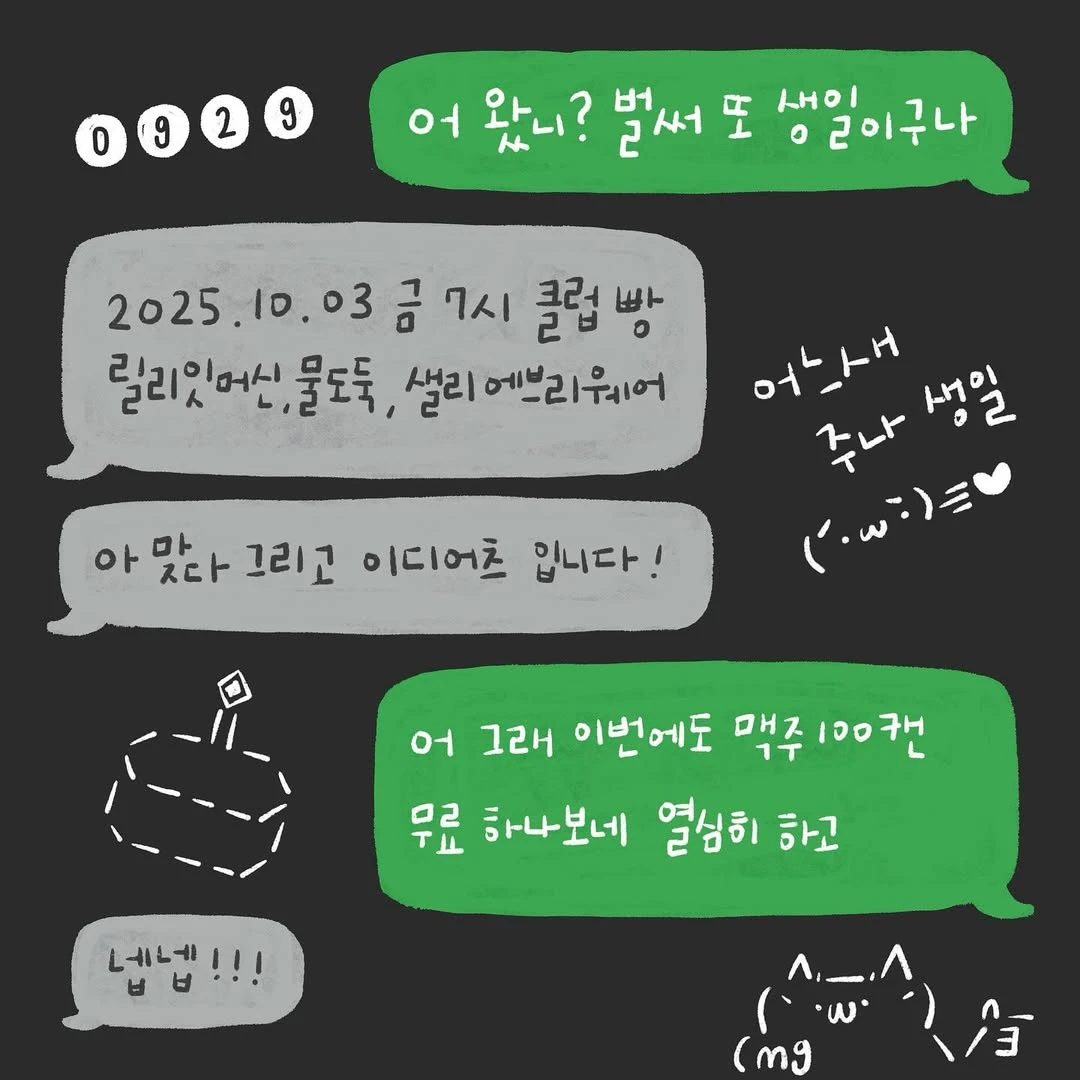 0929
어 왔니? 벌써 또 생일이구나
2025.10.03 금 7시 클럽 빵
릴리잇머신, 물도둑, 샐리에브리웨어
어느새
주나 생일
(´･ω･̆)≡♥
아 맞다 그리고 이디어츠 입니다!
어 그래 이번에도 맥주 100캔
무료 하나보네 열심히 하고
넵넵!!!
(mg